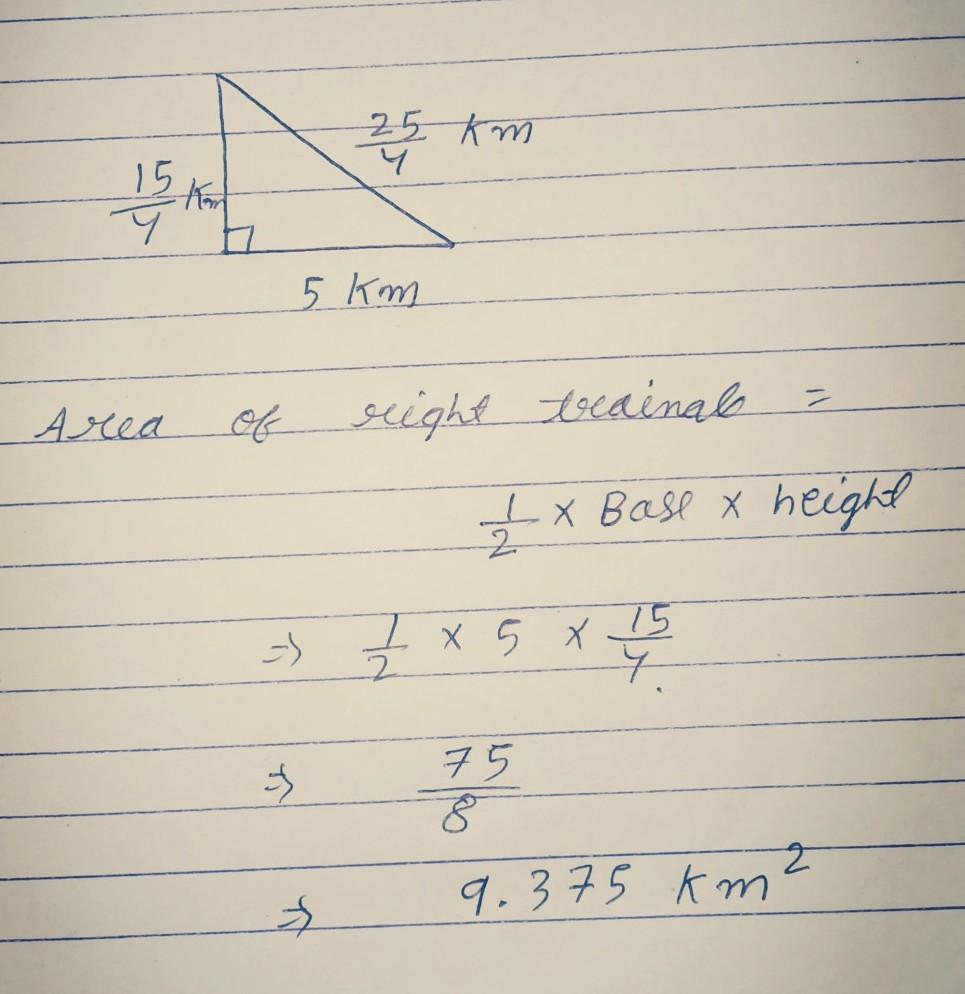 25/4 Km
15/4 Km
5 Km
Area of right trainal =
1/2 × Base × height
⇒ 1/2 × 5 × 15/4
⇒ 75/8
⇒ 9.375 Km²